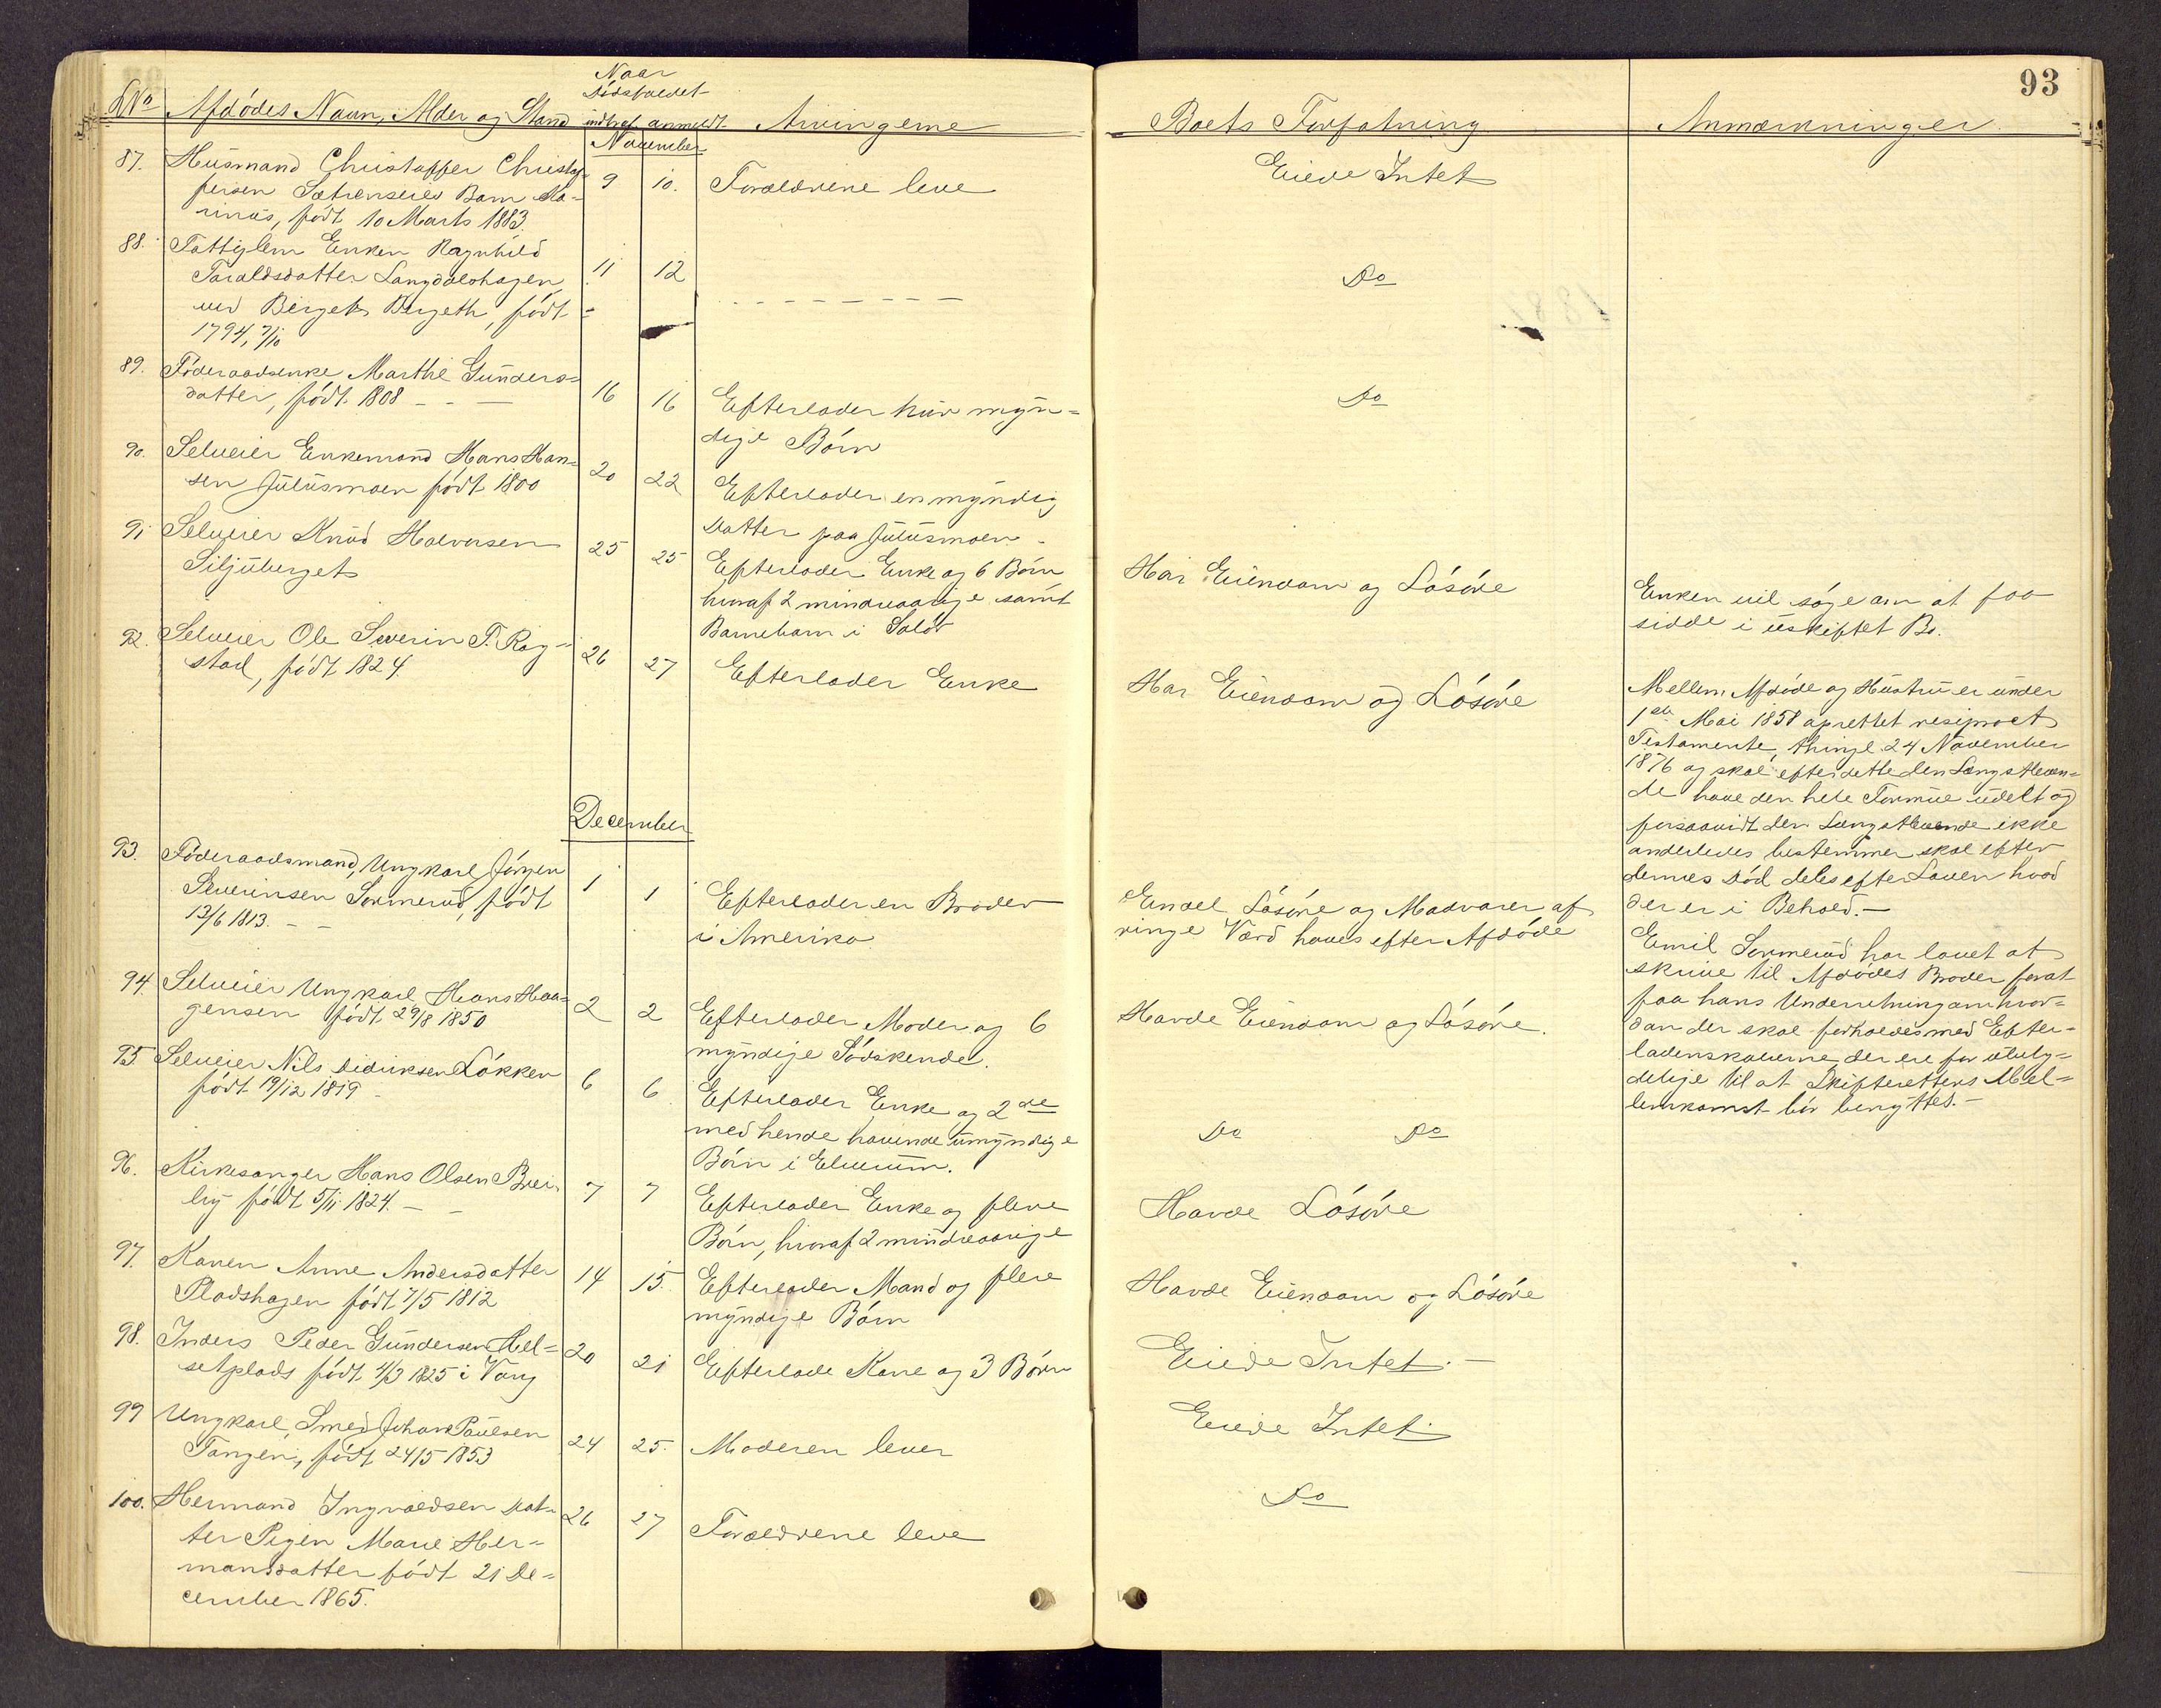 93
LNo Afdødes Navn, Alder og Stand
Naar
Dødsfaldet
indtraf anmeldt
Arvingerne
Boets Forfatning
Anmærkninger
November
87. Husmand Christoffer Christof=
fersen Sætrenseies Barn Ma=
rinus, født 10 Marts 1883.
9 10. Forældrene leve
Eiede Intet
88. Fattiglem Enken Ragnhild
Taraldsdatter Langdalshagen,
ved Berget Bergeth, født
1794, 7/10
11 12
Do
89. Føderaadsenke Marthe Gunders=
datter, født 1808
16 16 Efterlader kun myn=
dige Børn
Do
90. Selveier Enkemand Hans Han=
sen Julusmoen født 1800
20 22 Efterlader en myndig
Datter paa Julusmoen
91 Selveier Knud Halvorsen
Siljuberget
25 25 Efterlader Enke og 6 Børn
hvoraf 2 mindreaarige samt
Barnebarn i Solør
Har Eiendom og Løsøre
Enken vil søge om at faa
sidde i uskiftet Bo.
92. Selveier Ole Severin P. Rog=
stad, født 1824.
26 27 Efterlader Enke
Har Eiendom og Løsøre
Mellem Afdøde og Hustru er under
1ste Mai 1858 oprettet resiproct
Testamente, thingl. 24 November
1876 og skal efter dette den Længstleven=
de have den hele Formue udelt og
forsaavidt den Længstlevende ikke
anderledes bestemmer skal efter
dennes Død deles efter Loven hvad
der er i Behold.—
December
93. Føderaadsmand, Ungkarl Jørgen
Severinsen Sormerud, født
13/6 1813.
1 1 Efterlader en Broder
i Amerika
Eindel Løsøre og Madvarer af
ringe Værd haves efter Afdøde
Emil Sormerud har lovet at
skrive til Afdødes Broder forat
faa hans Underretning om hvor=
dan der skal forholdes med Efter=
ladenskaberne, der ere for ubety=
delige til at Skifterettens Mel=
lemkomst bør benyttes.—
94. Selveier Ungkarl Hans Haa=
gensen født 29/8 1850
2 2 Efterlader Moder og 6
myndige Sødskende.
Havde Eiendom og Løsøre.
95. Selveier Nils Didriksen Løkken
født 19/12 1819
6 6. Efterlader Enke og 2de
med hende havende umyndige
Børn i Elverum.
Do Do
96. Kirkesanger Hans Olsen Brei=
by født 5/11 1824.
7 7 Efterlader Enke og flere
Børn, hvoraf 2 mindreaarige
Havde Løsøre
97. Konen Anne Andersdatter
Pladshagen født 7/5 1812
14 15. Efterlader Mand og flere
myndige Børn
Havde Eiendom og Løsøre
98. Inders Peder Gundersen Hel=
setplads født 4/3 1825 i Vang
20 21 Efterlade Kone og 3 Børn
Eiede Intet.—
99 Ungkarl, Smed Johan Paulsen
Tangen, født 24/5 1853
24 25. Moderen lever
Eiede Intet.
100. Hermand Ingvaldsen Dat=
ter Pigen Marie Her=
mansdatter født 21 De=
cember 1865.
26 27 Forældrene leve
Do